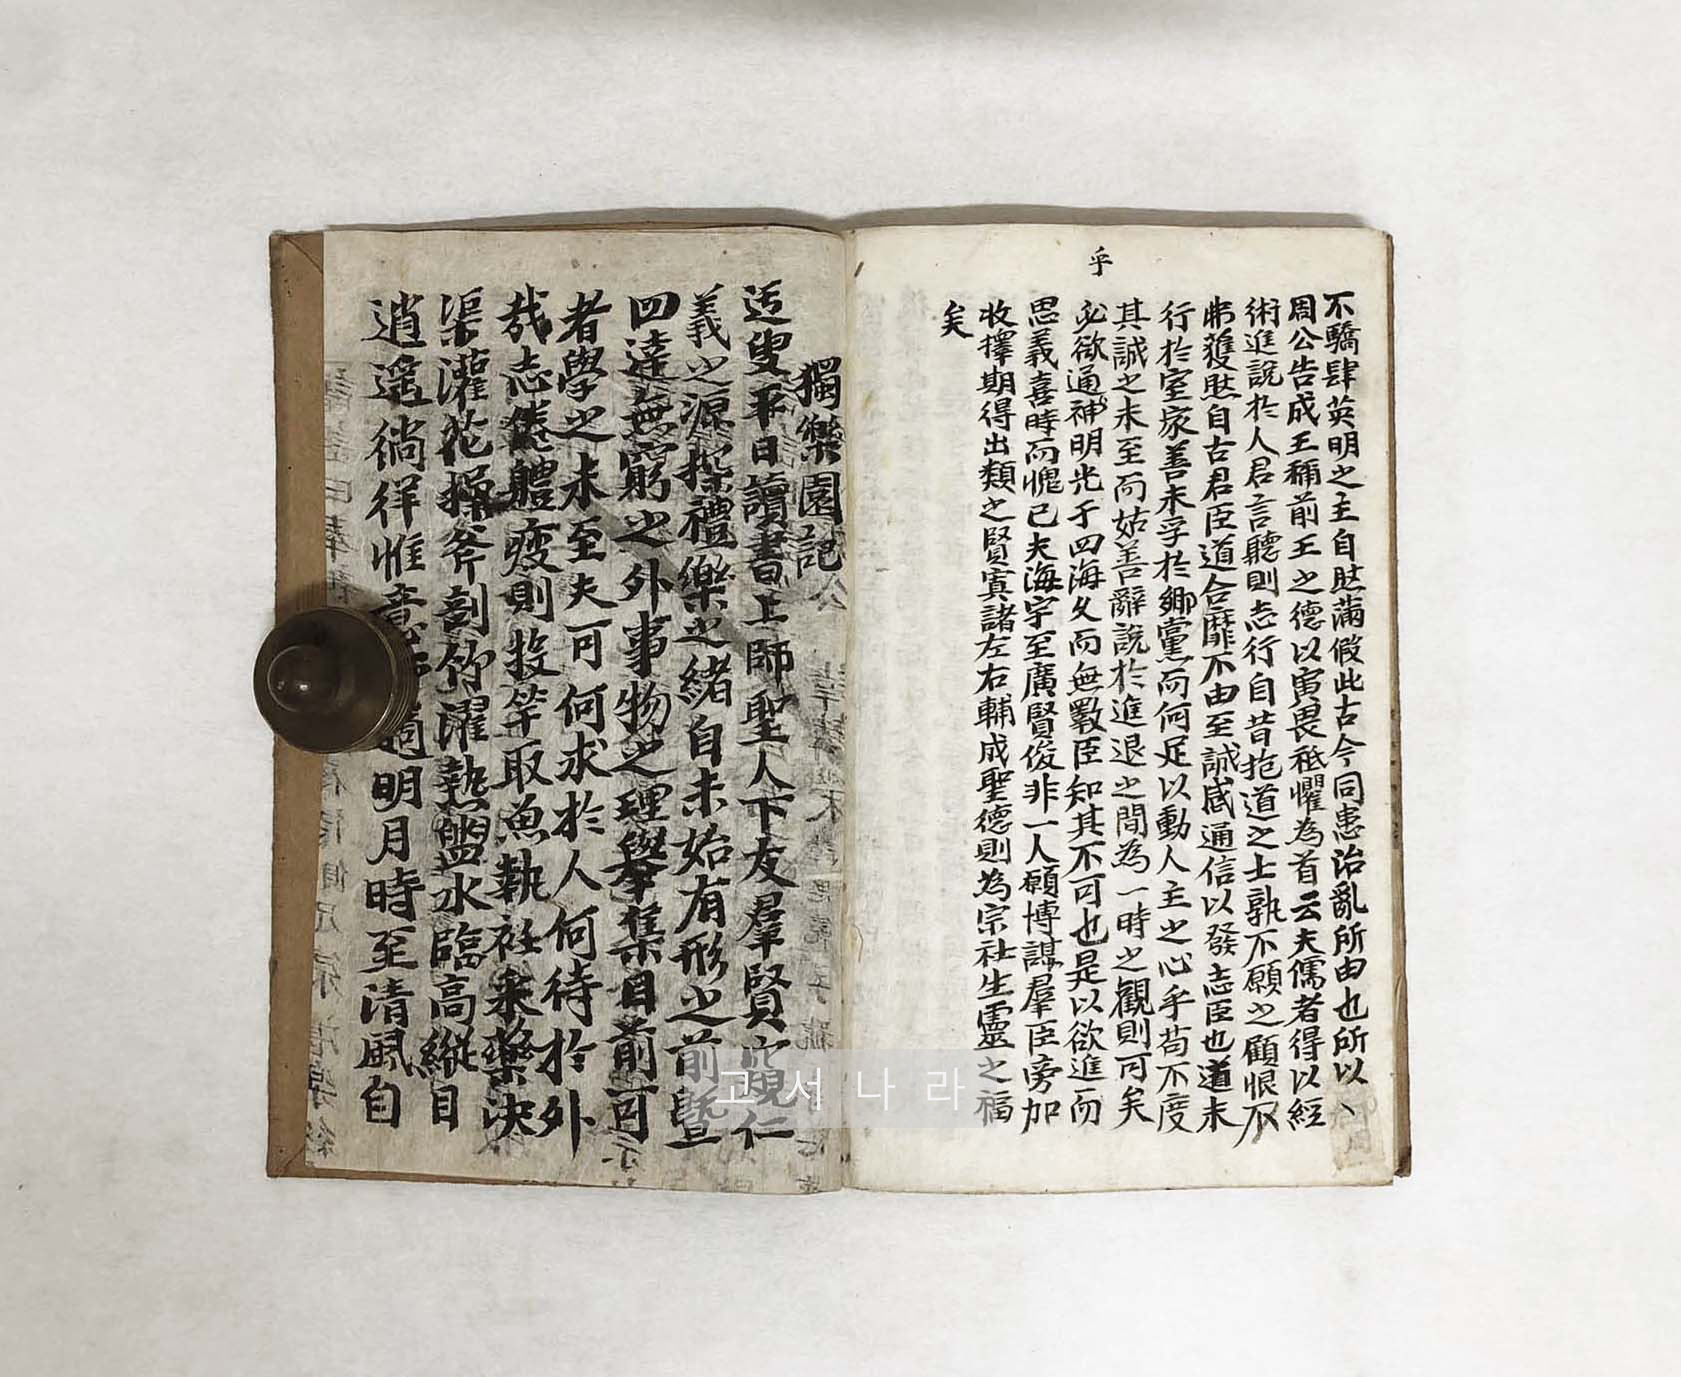 乎
不驕肆英明之主自肰滿假此古今同患治亂所由也所以
周公告成王稱前王之德以寅畏祗懼為首云夫儒者得以經
術進說於人君言聽則志行自昔抱道之士孰不願之顧恨不
弗獲肰自古君臣道合靡不由至誠感通信以發志臣也道未
行於室家善未孚於鄉黨而何足以動人主之心乎苟不度
其誠之未至而姑善辭說於進退之間為一時之觀則可矣
必欲通神明光于四海久而無斁臣知其不可也是以欲進而
思義喜時而愧已夫海宇至廣賢俊非一人願博謀羣臣旁加
收擇期得出類之賢寘諸左右輔成聖德則為宗社生靈之福
矣
獨樂園記
迂叟平日讀書上師聖人下友羣賢窺仁
義之源探禮樂之緒自未始有形之前曁
四達無窮之外事物之理擧集目前可
者學之未至夫可何求於人何待於外
哉志倦體疲則投竿取魚執衽采藥決
渠灌花操斧剖竹濯熱盥水臨高縱目
逍遥徜徉惟意 適明月時至清風自
고서나라